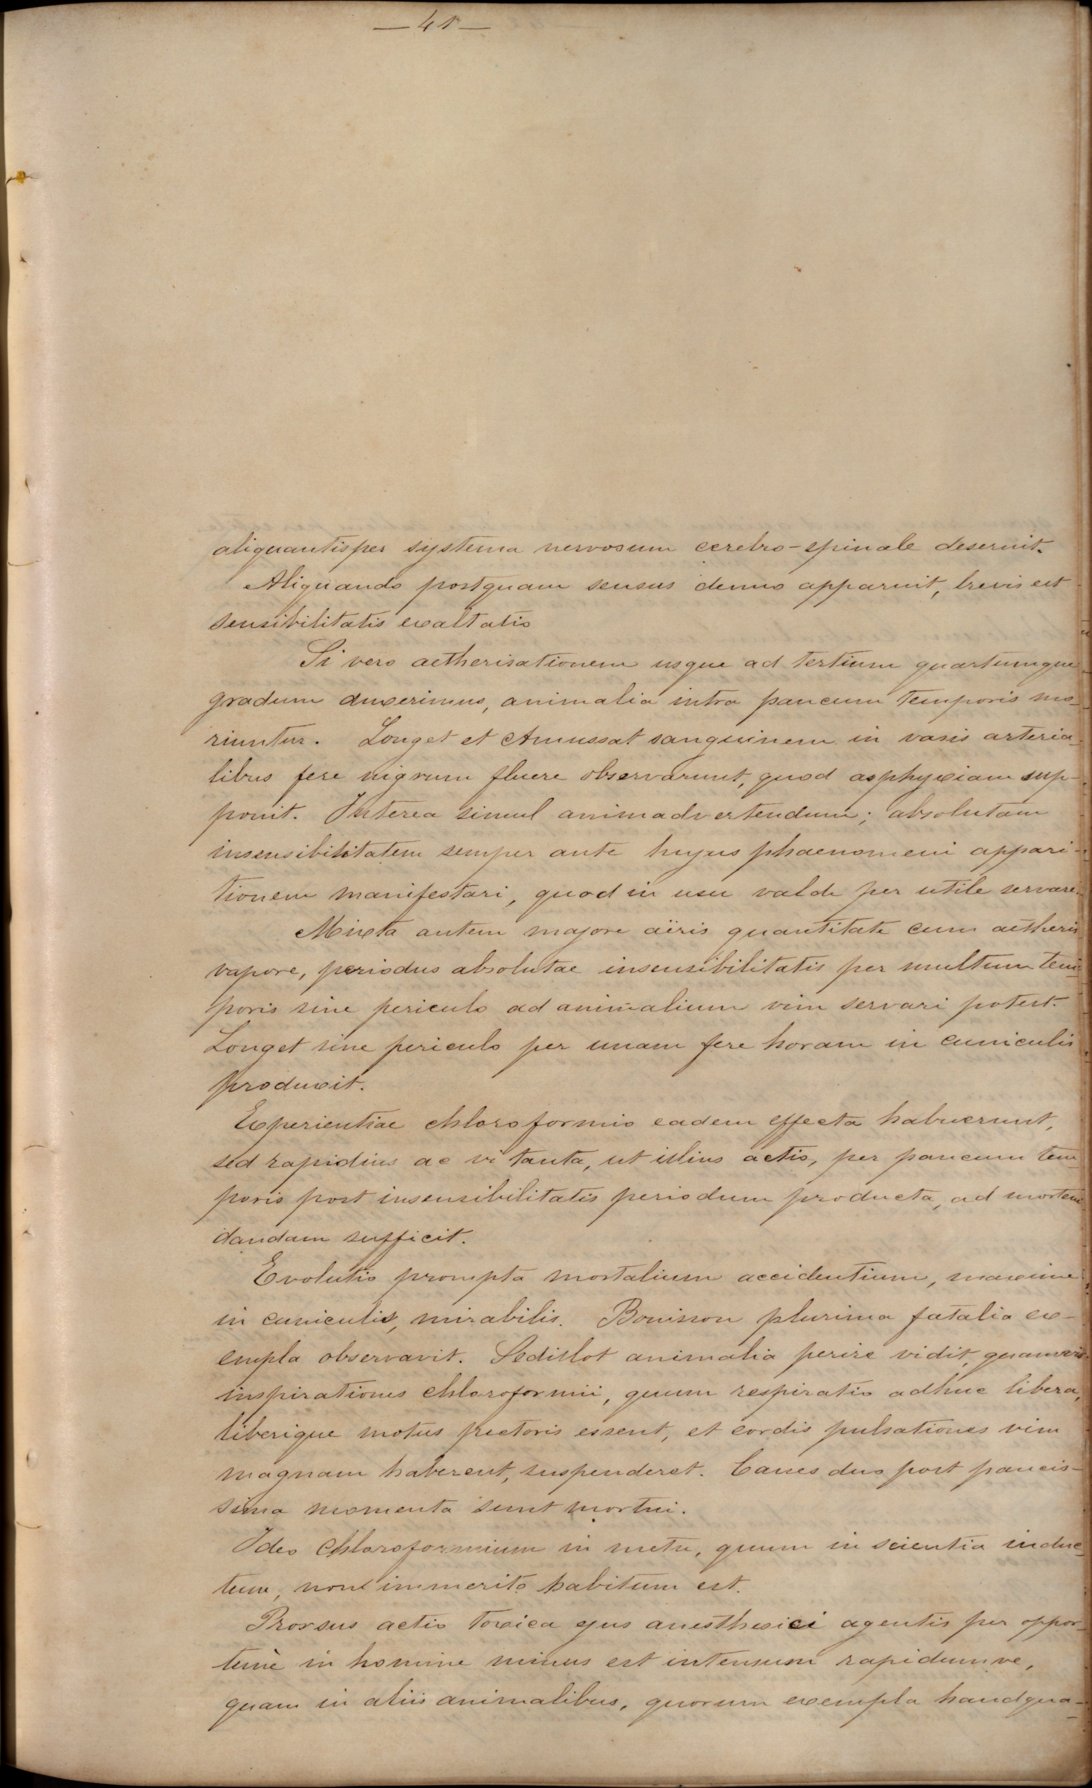 — 41 —
aliquantisper systema nervosum cerebro-spinale deseruit.
Aliquando postquam sensus denuo apparuit, brevis est
sensibilitatis exaltatio
Si vero aetherisationem usque ad tertium quartumque
gradum duxerimus, animalia intra paucum temporis mo-
riuntur. Longet et Amussat sanguinem in vasis arteria-
libus fere nigrum fluere observarunt, quod asphyxiam sup-
ponit. Interea simul animadvertendum; absolutam
insensibilitatem semper ante hujus phaenomeni appari-
tionem manifestari, quod in usu valde per utile servare.
Mixta autem majore aëris quantitate cum aetheris
vapore, periodus absolutae insensibilitatis per multum tem-
poris sine periculo ad animalium vim servari potest.
Longet sine periculo per unam fere horam in cuniculis
produxit.
Experientiae chloroformio eadem effecta habuerunt,
sed rapidius ac vi tanta, ut illius actio, per paucum tem
poris post insensibilitatis periodum producta, ad mortem
dandam sufficit.
Evolutio prompta mortalium accidentium, maxime
in cuniculis, mirabilis. Bouisson plurima fatalia ex-
empla observavit. Sedillot animalia perire vidit, quamvis
inspirationes chloroformii, quum respiratio adhuc libera,
liberique motus pectoris essent, et cordis pulsationes vim
magnam haberent, suspenderet. Canes duo post paucis-
sima momenta sunt mortui.
Ideo chloroformium in metu, quum in scientia induc-
tum, non immerito habitum est.
Prorsus actio toxica ejus anesthesici agentis per oppor-
tunè in homine minus est intensum rapidumve,
quam in aliis animalibus, quorum exempla haudqua-